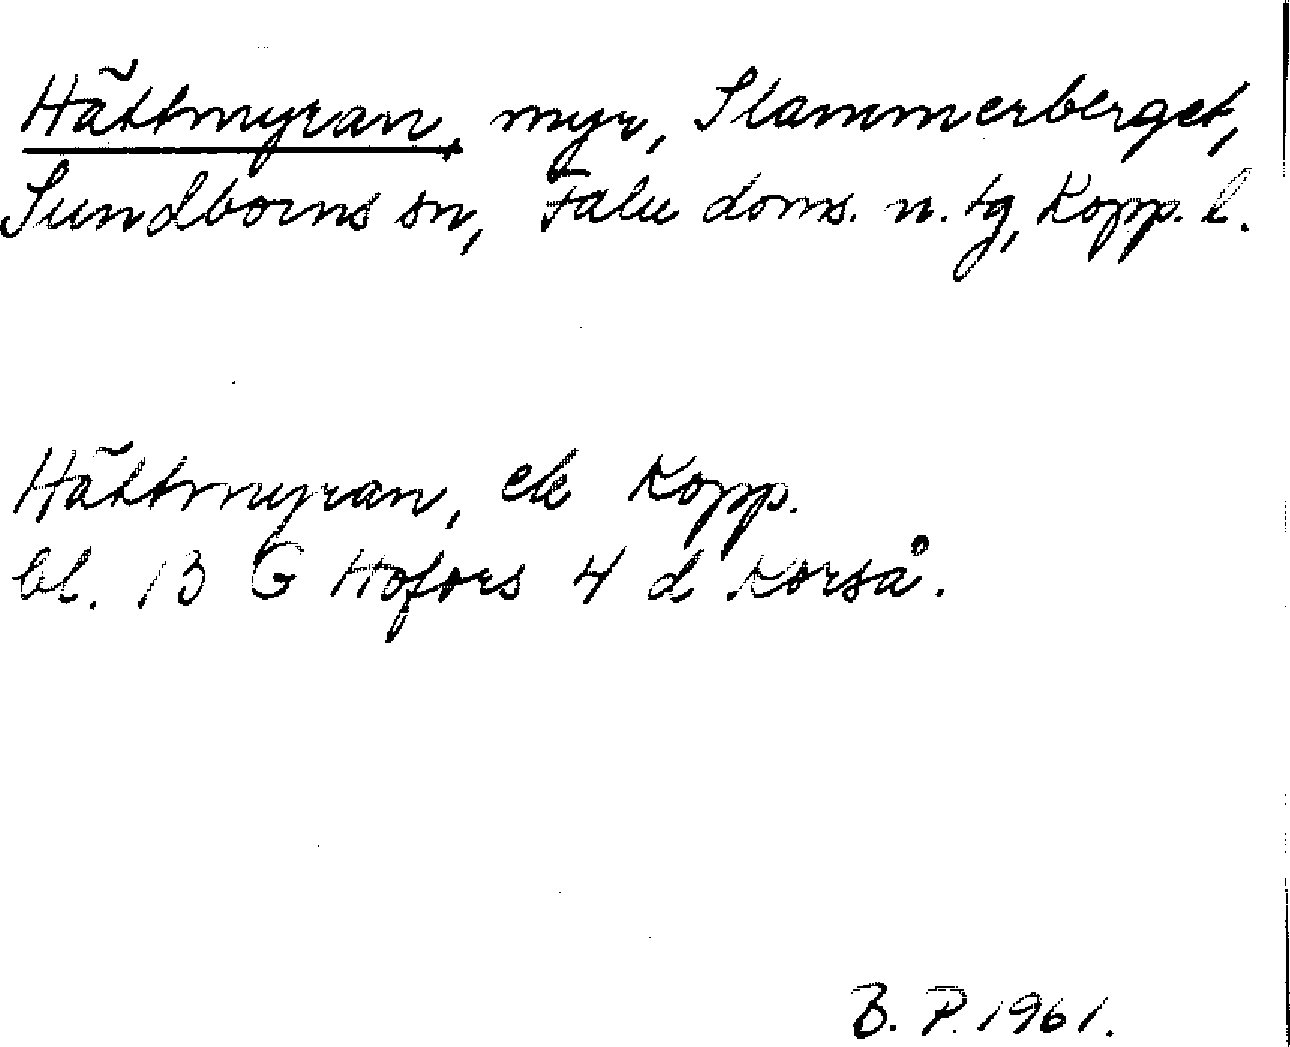 Hättmyran, myr, Slammerberget,
Sundborns sn, Falu doms. n. tg, Kopp. l.
Hättmyran, ek Kopp.
bl. 13 G Hofors 4 d Korså.
B. P. 1961.